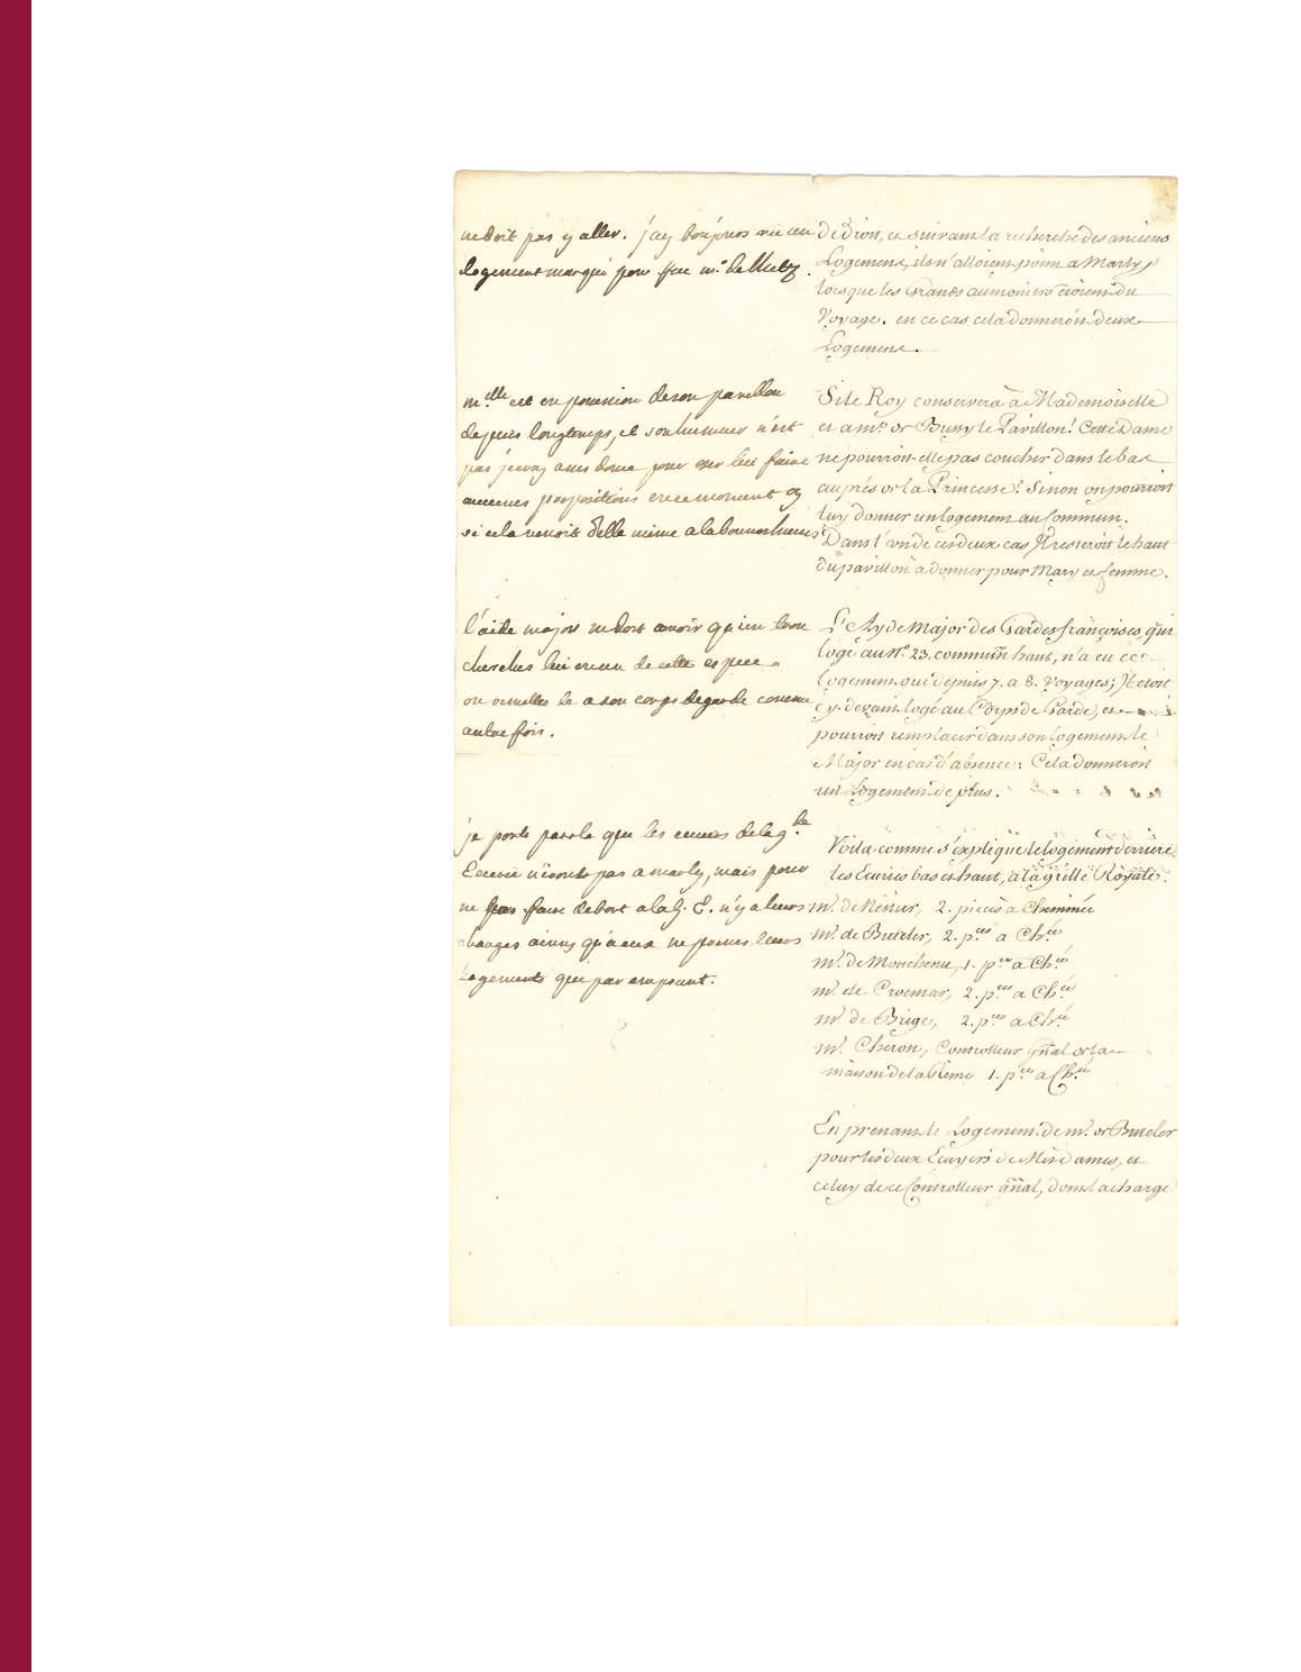 ne doit pas y aller. j'ay toujours vu un
logement marqué pour feu m.r de Metz.
m.elle est en possession de son pavillon
depuis longtemps, et son humeur n'est
pas je croy assés douce pour oser lui faire
aucunes propositions en ce moment cy
si cela venoit d'elle même a la bonne heure
l'aide major ne doit avoir qu'un trou
cherchés lui en un de cette espece
ou remettés le a son corps de garde comme
autre fois.
je porte parole que les ecuiers de la g.de
Ecurie n'iront pas a marly, mais pour
ne pas faire de tort a la g. E. n'y a leurs
charges ainsy qu'a eux ne prenes leurs
logements que par emprunt.
de Dron, et suivant la recherche des anciens
Logemens, ils n'alloient point a Marly
lorsque les Grands aumoniers étoient du
Voyage. en ce cas cela donneroit deux
Logemens.
Si le Roy conservera à Mademoiselle
et a m.e de Bussy le Pavillon! Cette Dame
ne pourroit-elle pas coucher dans le bas
auprés de la Princesse! Sinon on pourroit
luy donner un logement au Commun.
Dans l'un de ces deux cas Il resteroit le haut
du pavillon à donner pour Mary et femme.
L'Ayde Major des Gardes françoises, qui
logé au N.o 23. commun haut, n'a eu ce
logement que depuis 7. a 8. Voyages; Il etoit
cy-devant logé au Corps de Garde, et
pourroit remplacer dans son logement le
Major en cas d'absence: Cela donneroit
un Logement de plus.
Voila comme s'explique le logement derriere
les Ecuries bas et haut, a la grille Royale.
m.r de Nestier, 2. pieces a Cheminée
m.r de Butler, 2. p.ces a Ch.ée
m.r de Monchenu, 1. p.ce a Ch.ée
m.r de Croismar, 2. p.ces a Ch.ée
m.r de Brige, 2. p.ces a Ch.ée
m.r Cheron, Controlleur gñal de la
maison de la Reine 1. p.ce a Ch.ée
En prenant le Logement de m.r de Butler
pour les deux Ecuyers de Mesdames, et
celuy de ce Controlleur gñal, dont la charge